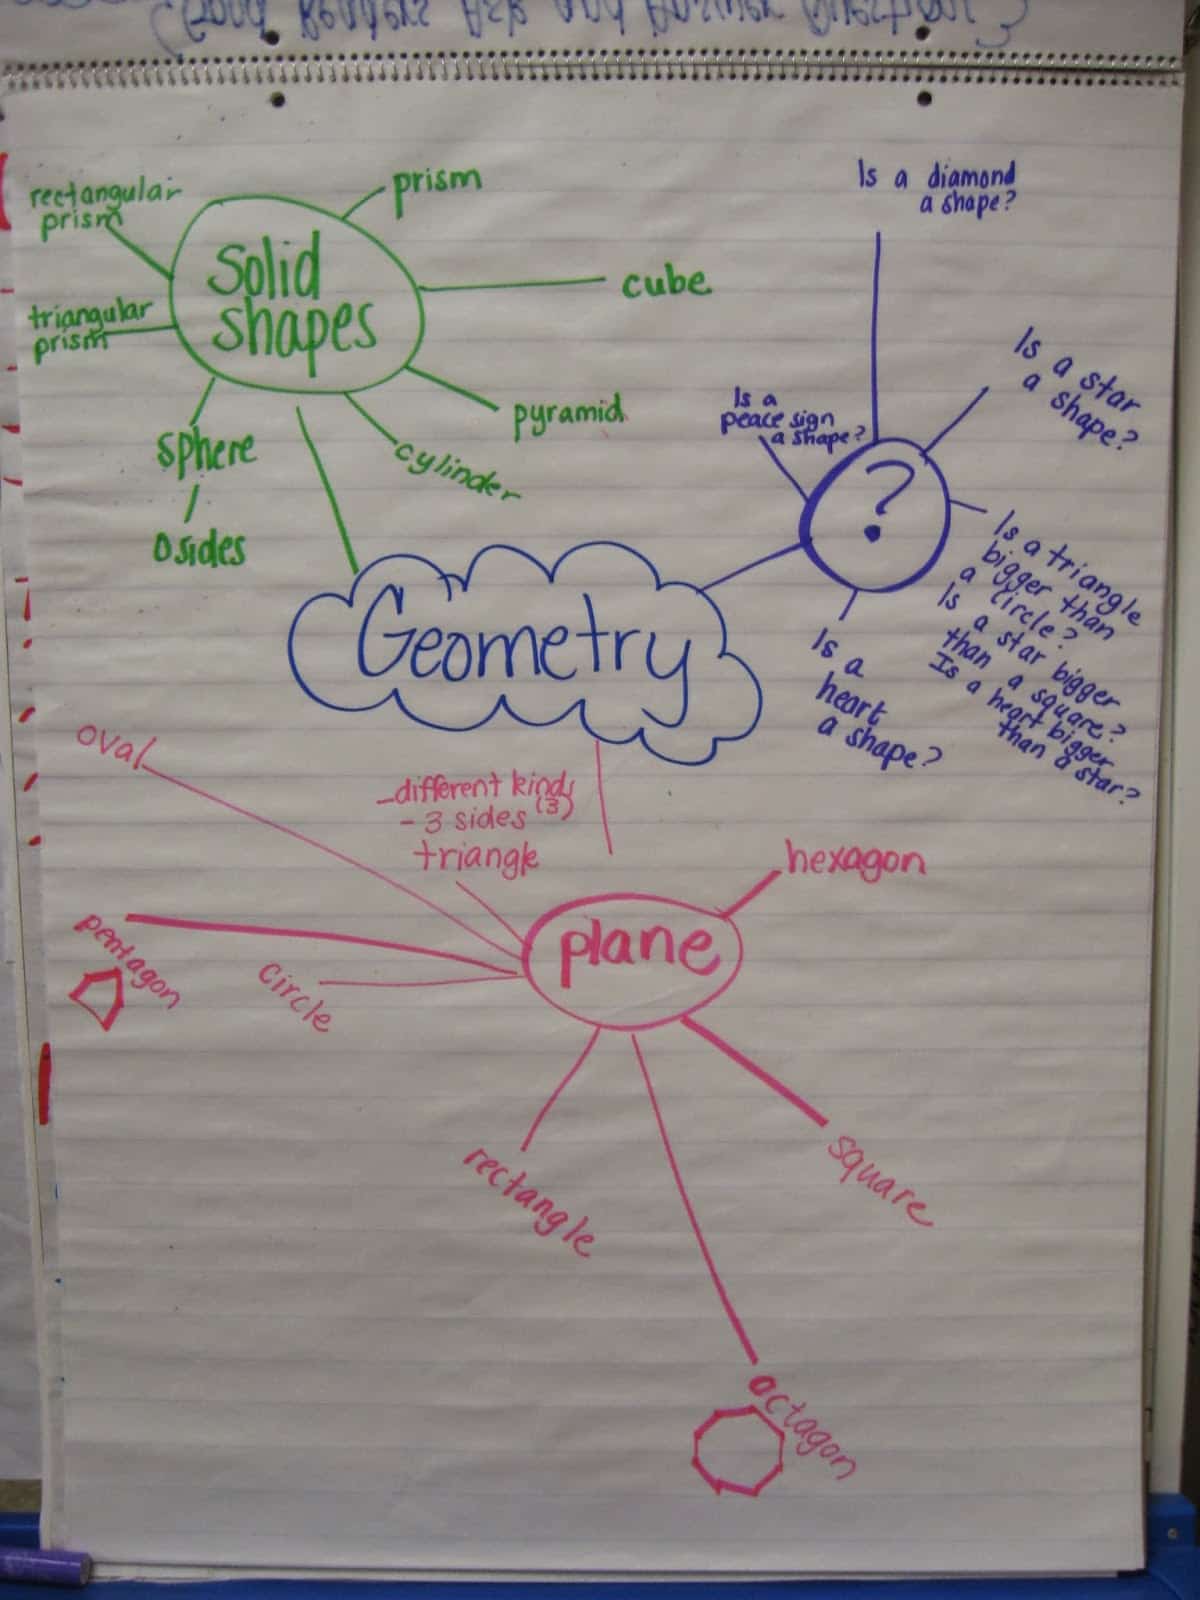 Good Readers Ask and Answer Questions
rectangular
prism
prism
Solid
shapes
cube
triangular
prism
pyramid
cylinder
sphere
0 sides
Is a diamond
a shape?
Is a star
a shape?
Is a
peace sign
a shape?
?
Is a triangle
bigger than
a circle?
Is a star bigger
than a square?
Is a heart bigger
than a star?
Is a
heart
a shape?
Geometry
oval
-different kinds
(3)
- 3 sides
triangle
hexagon
plane
pentagon
circle
rectangle
square
octagon